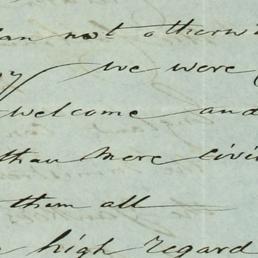 not otherwi
we were
welcome and
than mere civi
them all
high regard